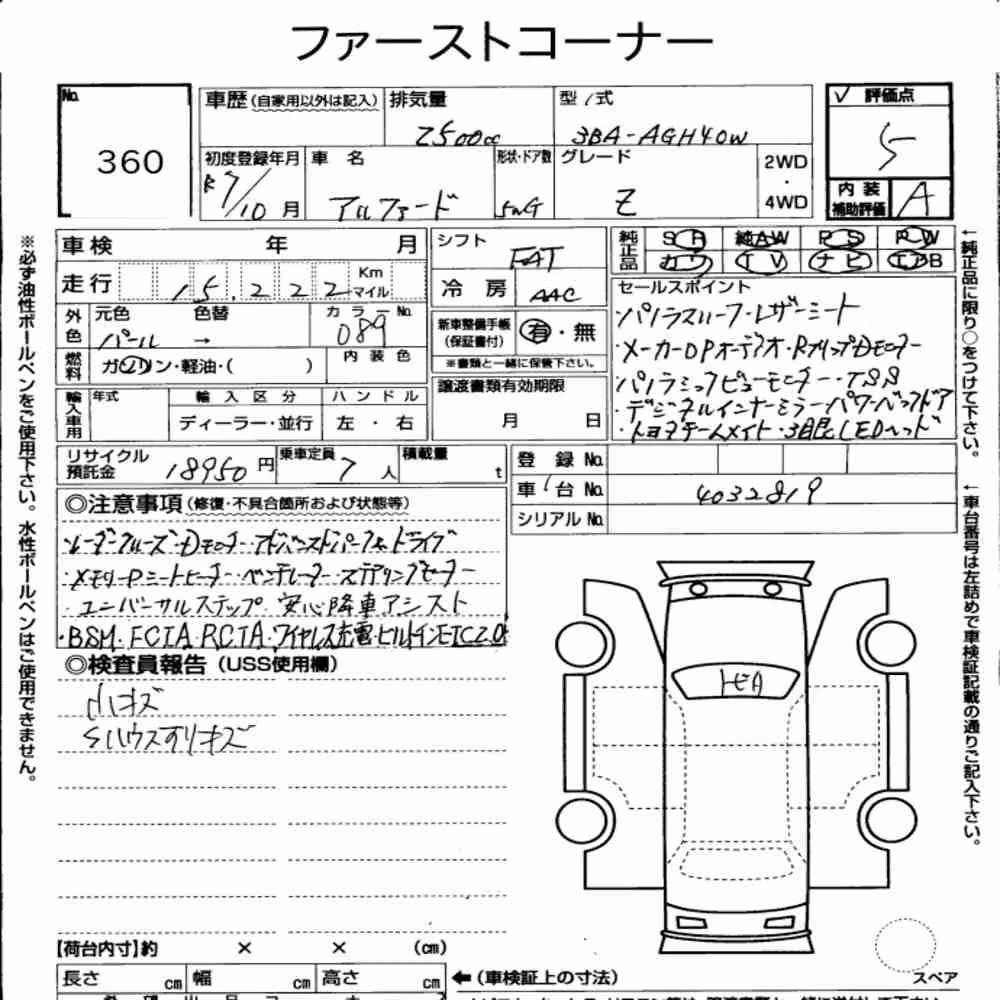 ファーストコーナー
No. 360
車歴(自家用以外は記入) 排気量 2500cc 型式 3BA-AGH40W
評価点 5
初度登録年月 R7/10月 車名 アルファード 形状・ドア数 5WG グレード Z 2WD・4WD
内装補助評価 A
車検 年 月
走行 15,222 Km マイル
シフト FAT
冷房 AAC
純正品 SR 純AW PS PW
カワ TV ナビ エアB
外色 元色 パール 色替 → カラーNo. 089
燃料 ガソリン・軽油・( ) 内装色
新車整備手帳(保証書付) 有・無
※書類と一緒に保管下さい。
譲渡書類有効期限 月 日
輸入車用 年式 輸入区分 ハンドル
ディーラー・並行 左・右
セールスポイント
パノラスルーフ・レザーシート
・メーカーOPオーディオ・RフリップDモニター
・パノラミックビューモニター・TSS
・デジタルインナーミラー・パワーバックドア
・トヨタチームメイト・3目眼LEDヘッド
リサイクル預託金 18950円 乗車定員 7人 積載量 t
登録No.
車台No. 4032819
シリアルNo.
◎注意事項(修復・不具合箇所および状態等)
レーダークルーズ・Dモニター・アドバンストパーク&ドライブ
・メモリーPシートヒーター・ベンチレーター・ステアリングヒーター
・ユニバーサルステップ・安心降車アシスト
・BSM・FCTA・RCTA・ワイヤレス充電・ビルトインETC2.0
◎検査員報告(USS使用欄)
小キズ
Sハウススリキズ
トビA
【荷台内寸】約 × × (cm)
長さ cm 幅 cm 高さ cm ←(車検証上の寸法)
スペア
※必ず油性ボールペンをご使用下さい。水性ボールペンはご使用できません。
←純正品に限り○をつけて下さい。
←車台番号は左詰めで車検証記載の通りご記入下さい。